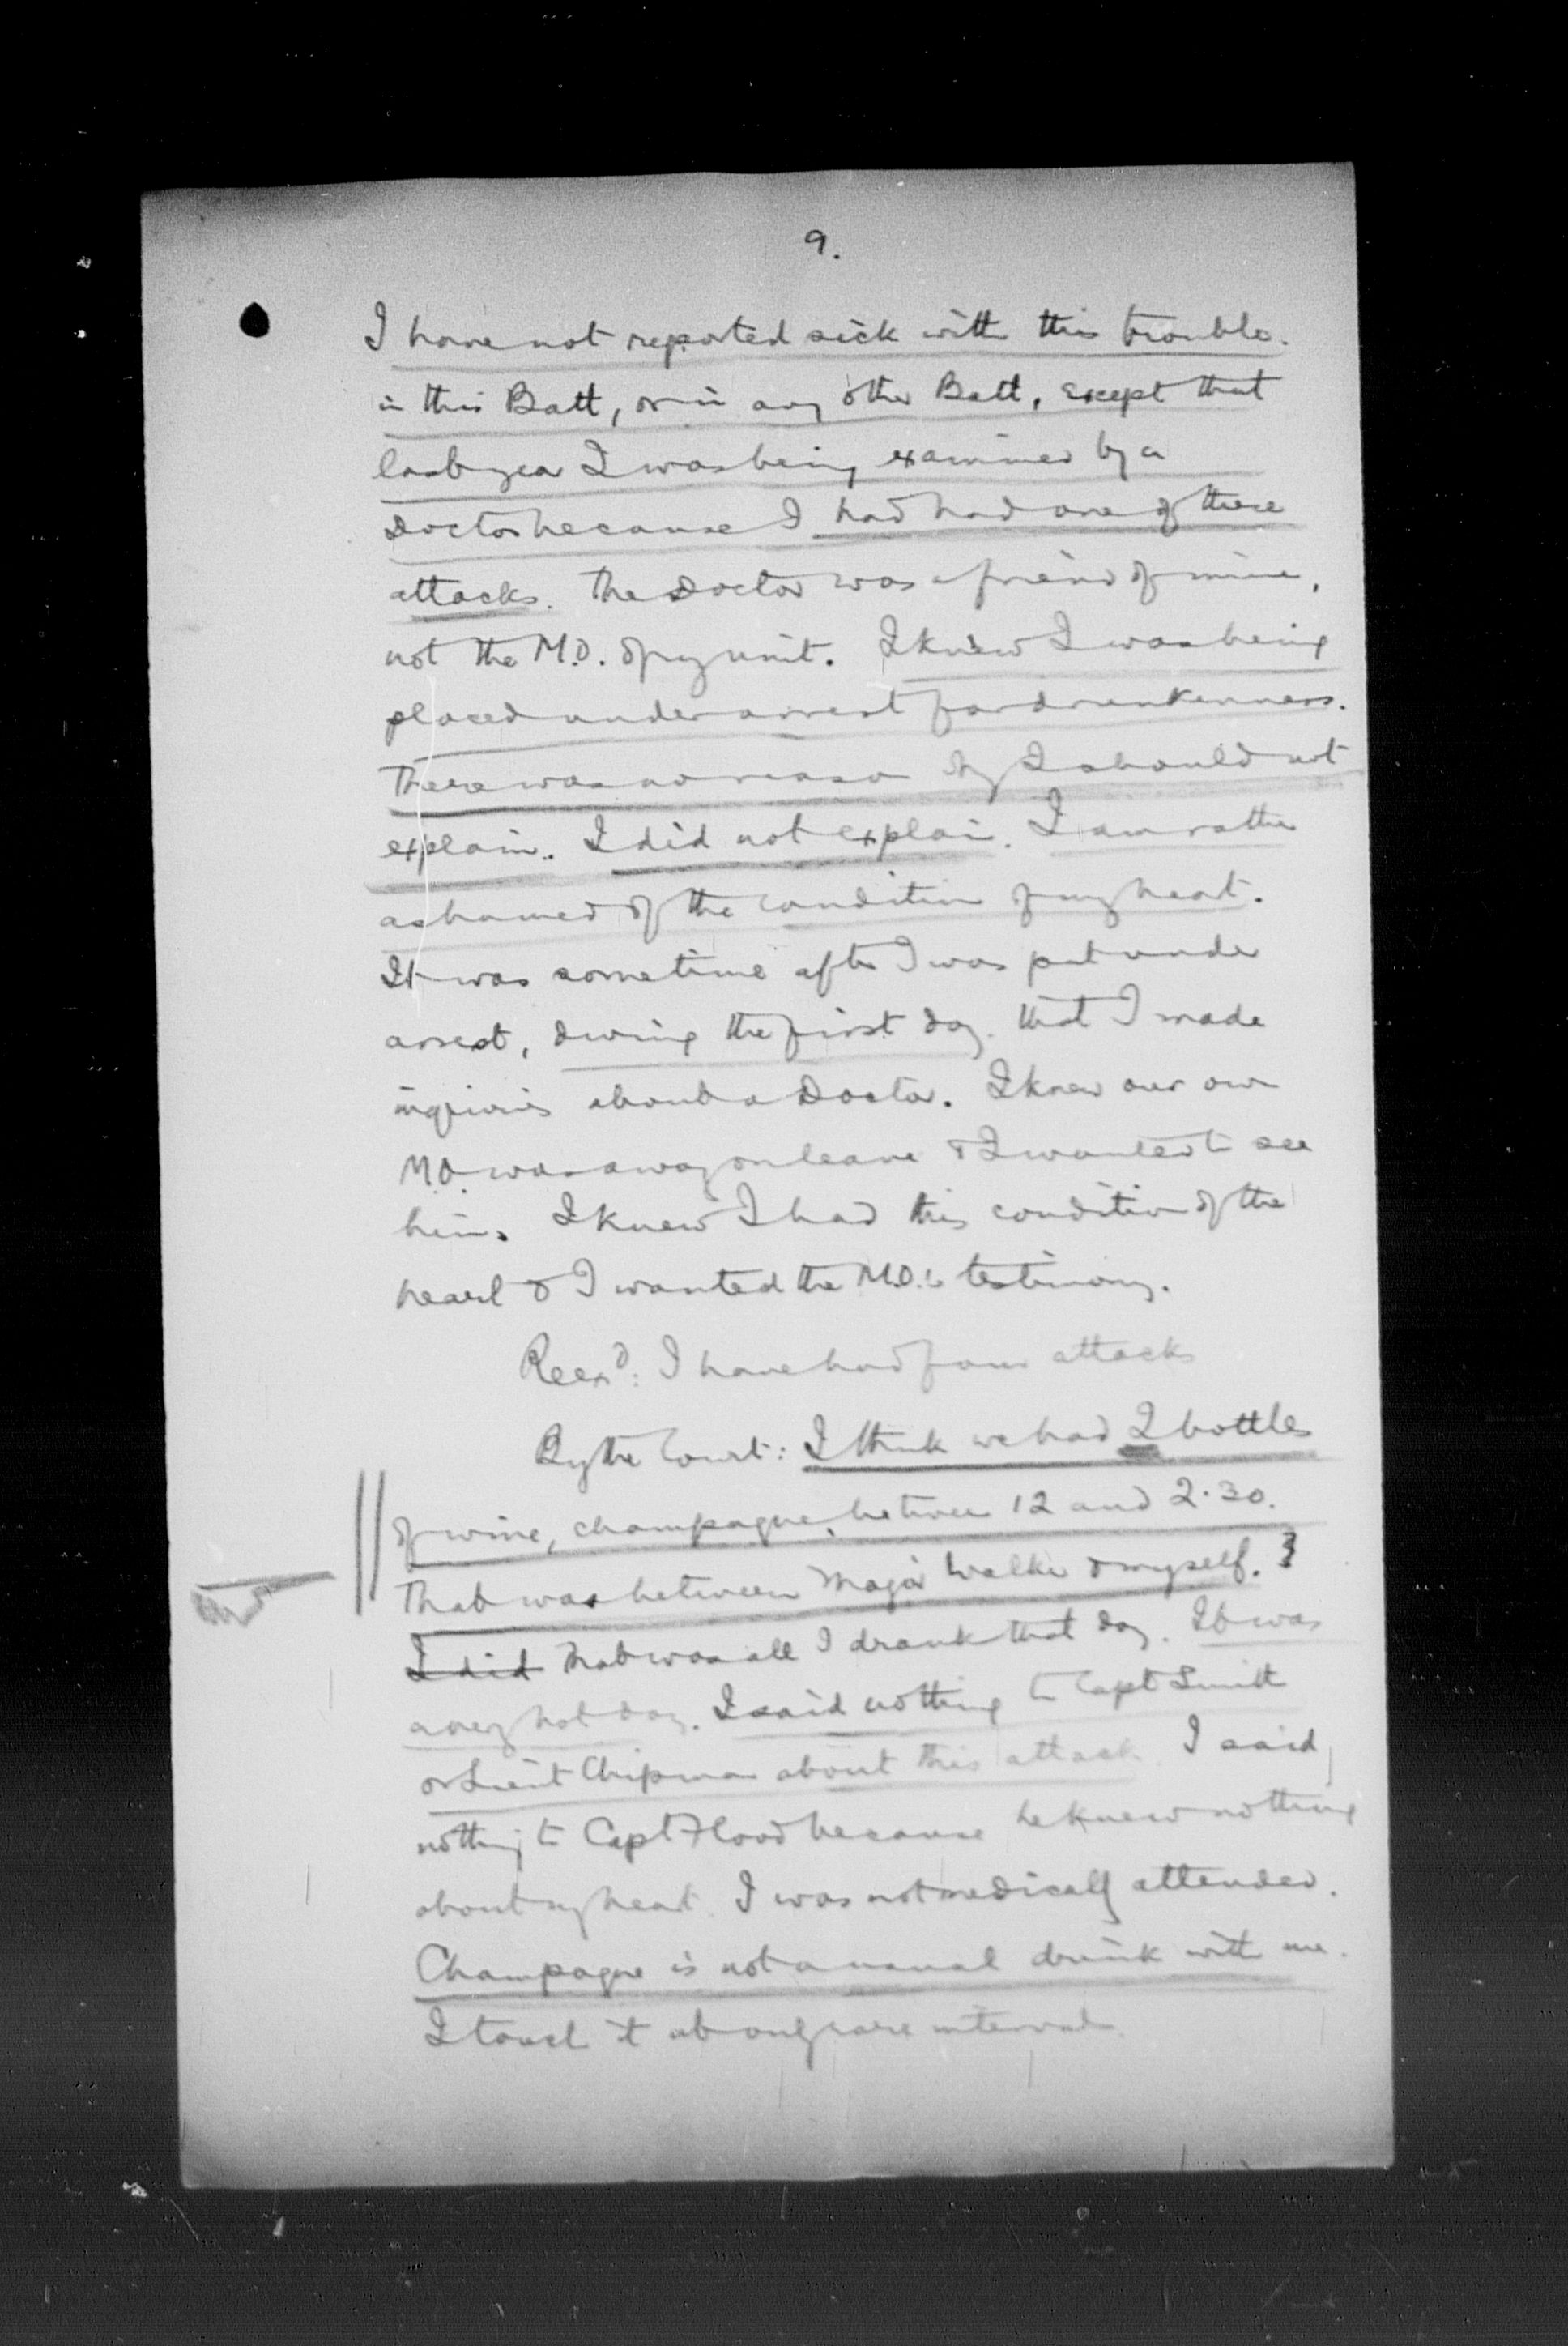 9.
I have not reported sick with this trouble.
in this Batt, or in any other Batt, except that
last year I was being examined by a
Doctor because I had had one of these
attacks. The Doctor was a friend of mine,
not the M.O. of my unit. I knew I was being
placed under arrest for drunkenness.
There was no reason why I should not
explain. I did not explain. I am rather
ashamed of the condition of my heart.
It was sometime after I was put under
arrest, during the first day. that I made
inquiries about a Doctor. I knew our own
M.O. was away on leave & I wanted to see
him. I knew I had this condition of the
heart & I wanted the M.O.'s testimony.
Reexd: I have had four attacks
By the Court: I think we had 2 bottles
of wine, champagne, between 12 and 2.30.
That was between Major Walker & myself.
I did That was all I drank that day. It was
a very hot day. I said nothing to Capt Smith
or Lieut Chipman about this attack. I said
nothing to Capt Flood because he knew nothing
about my heart. I was not medically attended.
Champagne is not a usual drink with me.
I touch it at only rare intervals.